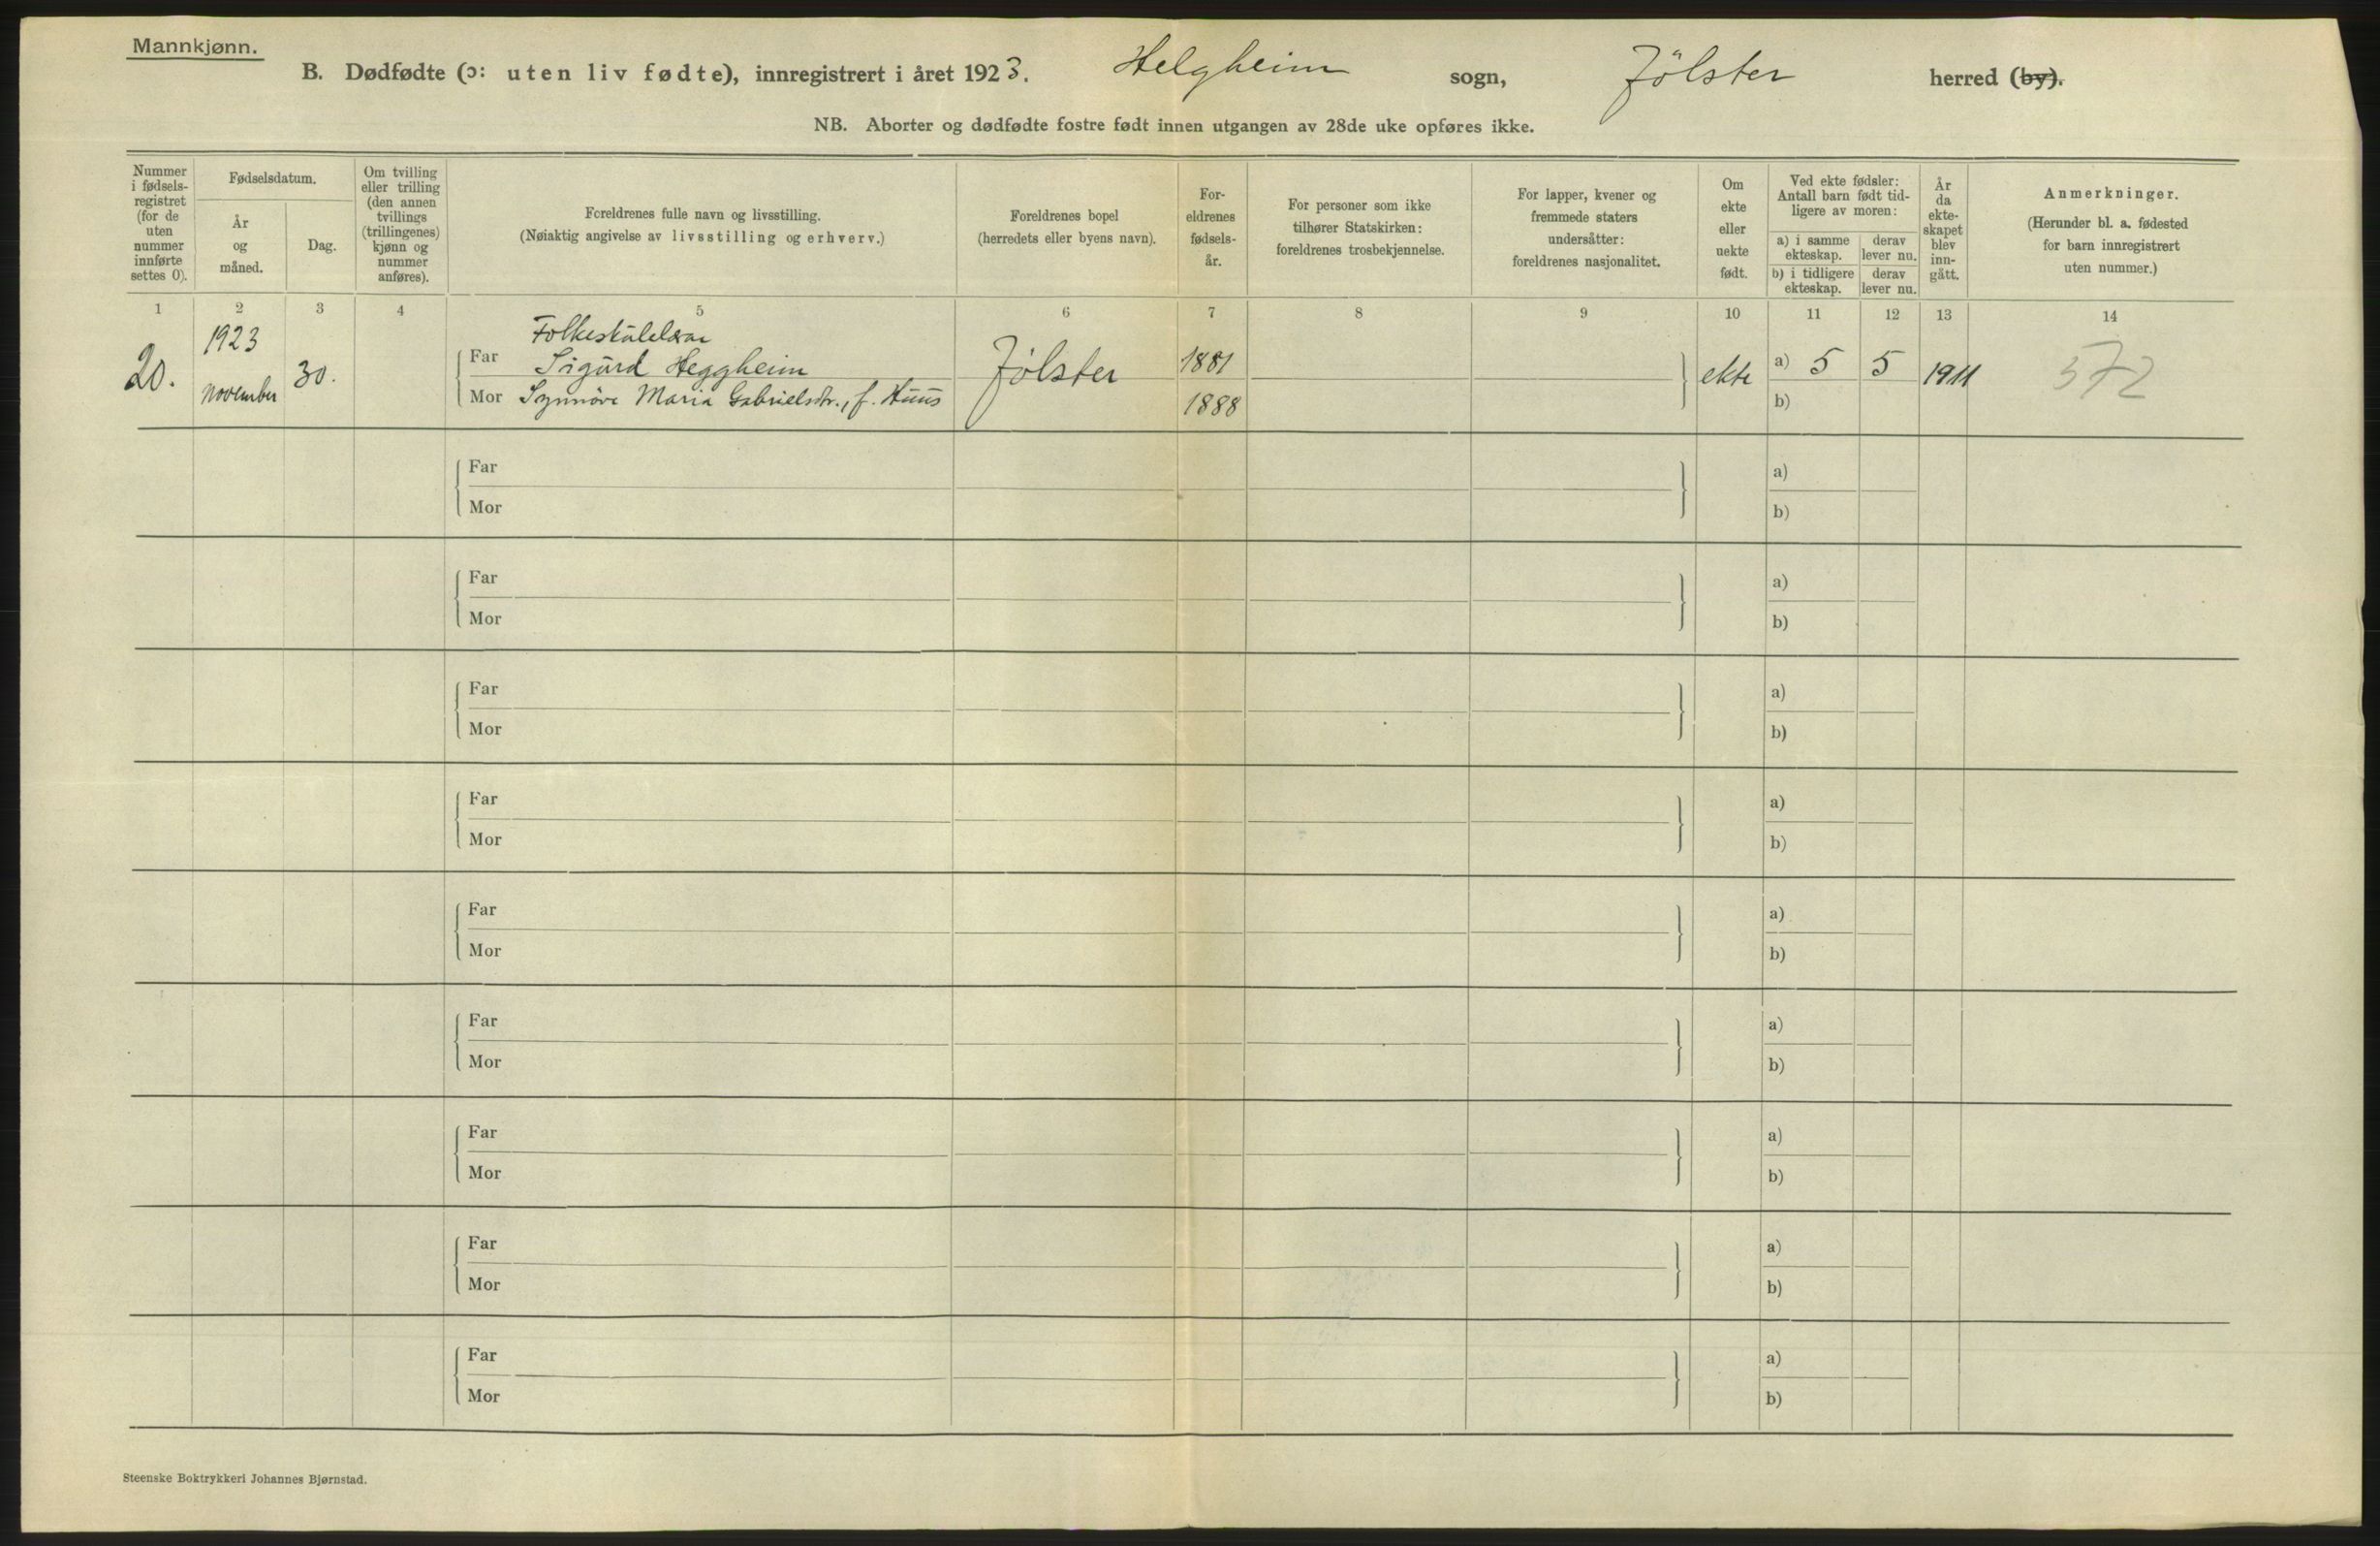 Mannkjønn.
B. Dødfødte (ɔ: uten liv fødte), innregistrert i året 1923. Helgheim sogn, Jölster herred (by).
NB. Aborter og dødfødte fostre født innen utgangen av 28de uke opføres ikke.
Nummer
i fødsels-
registret
(for de
uten
nummer
innførte
settes 0).
Fødselsdatum.
År
og
måned.
Dag.
Om tvilling
eller trilling
(den annen
tvillings
(trillingenes)
kjønn og
nummer
anføres).
Foreldrenes fulle navn og livsstilling.
(Nøiaktig angivelse av livsstilling og erhverv.)
Foreldrenes bopel
(herredets eller byens navn).
For-
eldrenes
fødsels-
år.
For personer som ikke
tilhører Statskirken:
foreldrenes trosbekjennelse.
For lapper, kvener og
fremmede staters
undersåtter:
foreldrenes nasjonalitet.
Om
ekte
eller
uekte
født.
Ved ekte fødsler:
Antall barn født tid-
ligere av moren:
a) i samme
ekteskap.
derav
lever nu.
b) i tidligere
ekteskap.
derav
lever nu.
År
da
ekte-
skapet
blev
inn-
gått.
Anmerkninger.
(Herunder bl. a. fødested
for barn innregistrert
uten nummer.)
1 2 3 4 5 6 7 8 9 10 11 12 13 14
20.
1923
november
30.
Folkeskulelærar
Far Sigurd Heggheim
Mor Synnöve Maria Gabrielsdtr., f. Huus
Jölster
1881
1888
ekte
a) 5 5
b)
1911
572
Far
Mor
a)
b)
Far
Mor
a)
b)
Far
Mor
a)
b)
Far
Mor
a)
b)
Far
Mor
a)
b)
Far
Mor
a)
b)
Far
Mor
a)
b)
Far
Mor
a)
b)
Far
Mor
a)
b)
Steenske Boktrykkeri Johannes Bjørnstad.